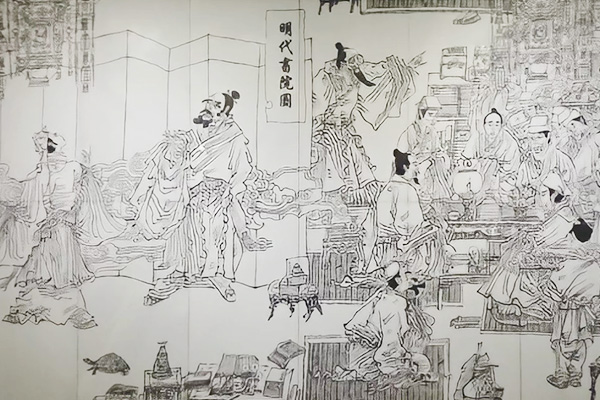 明代書院圖